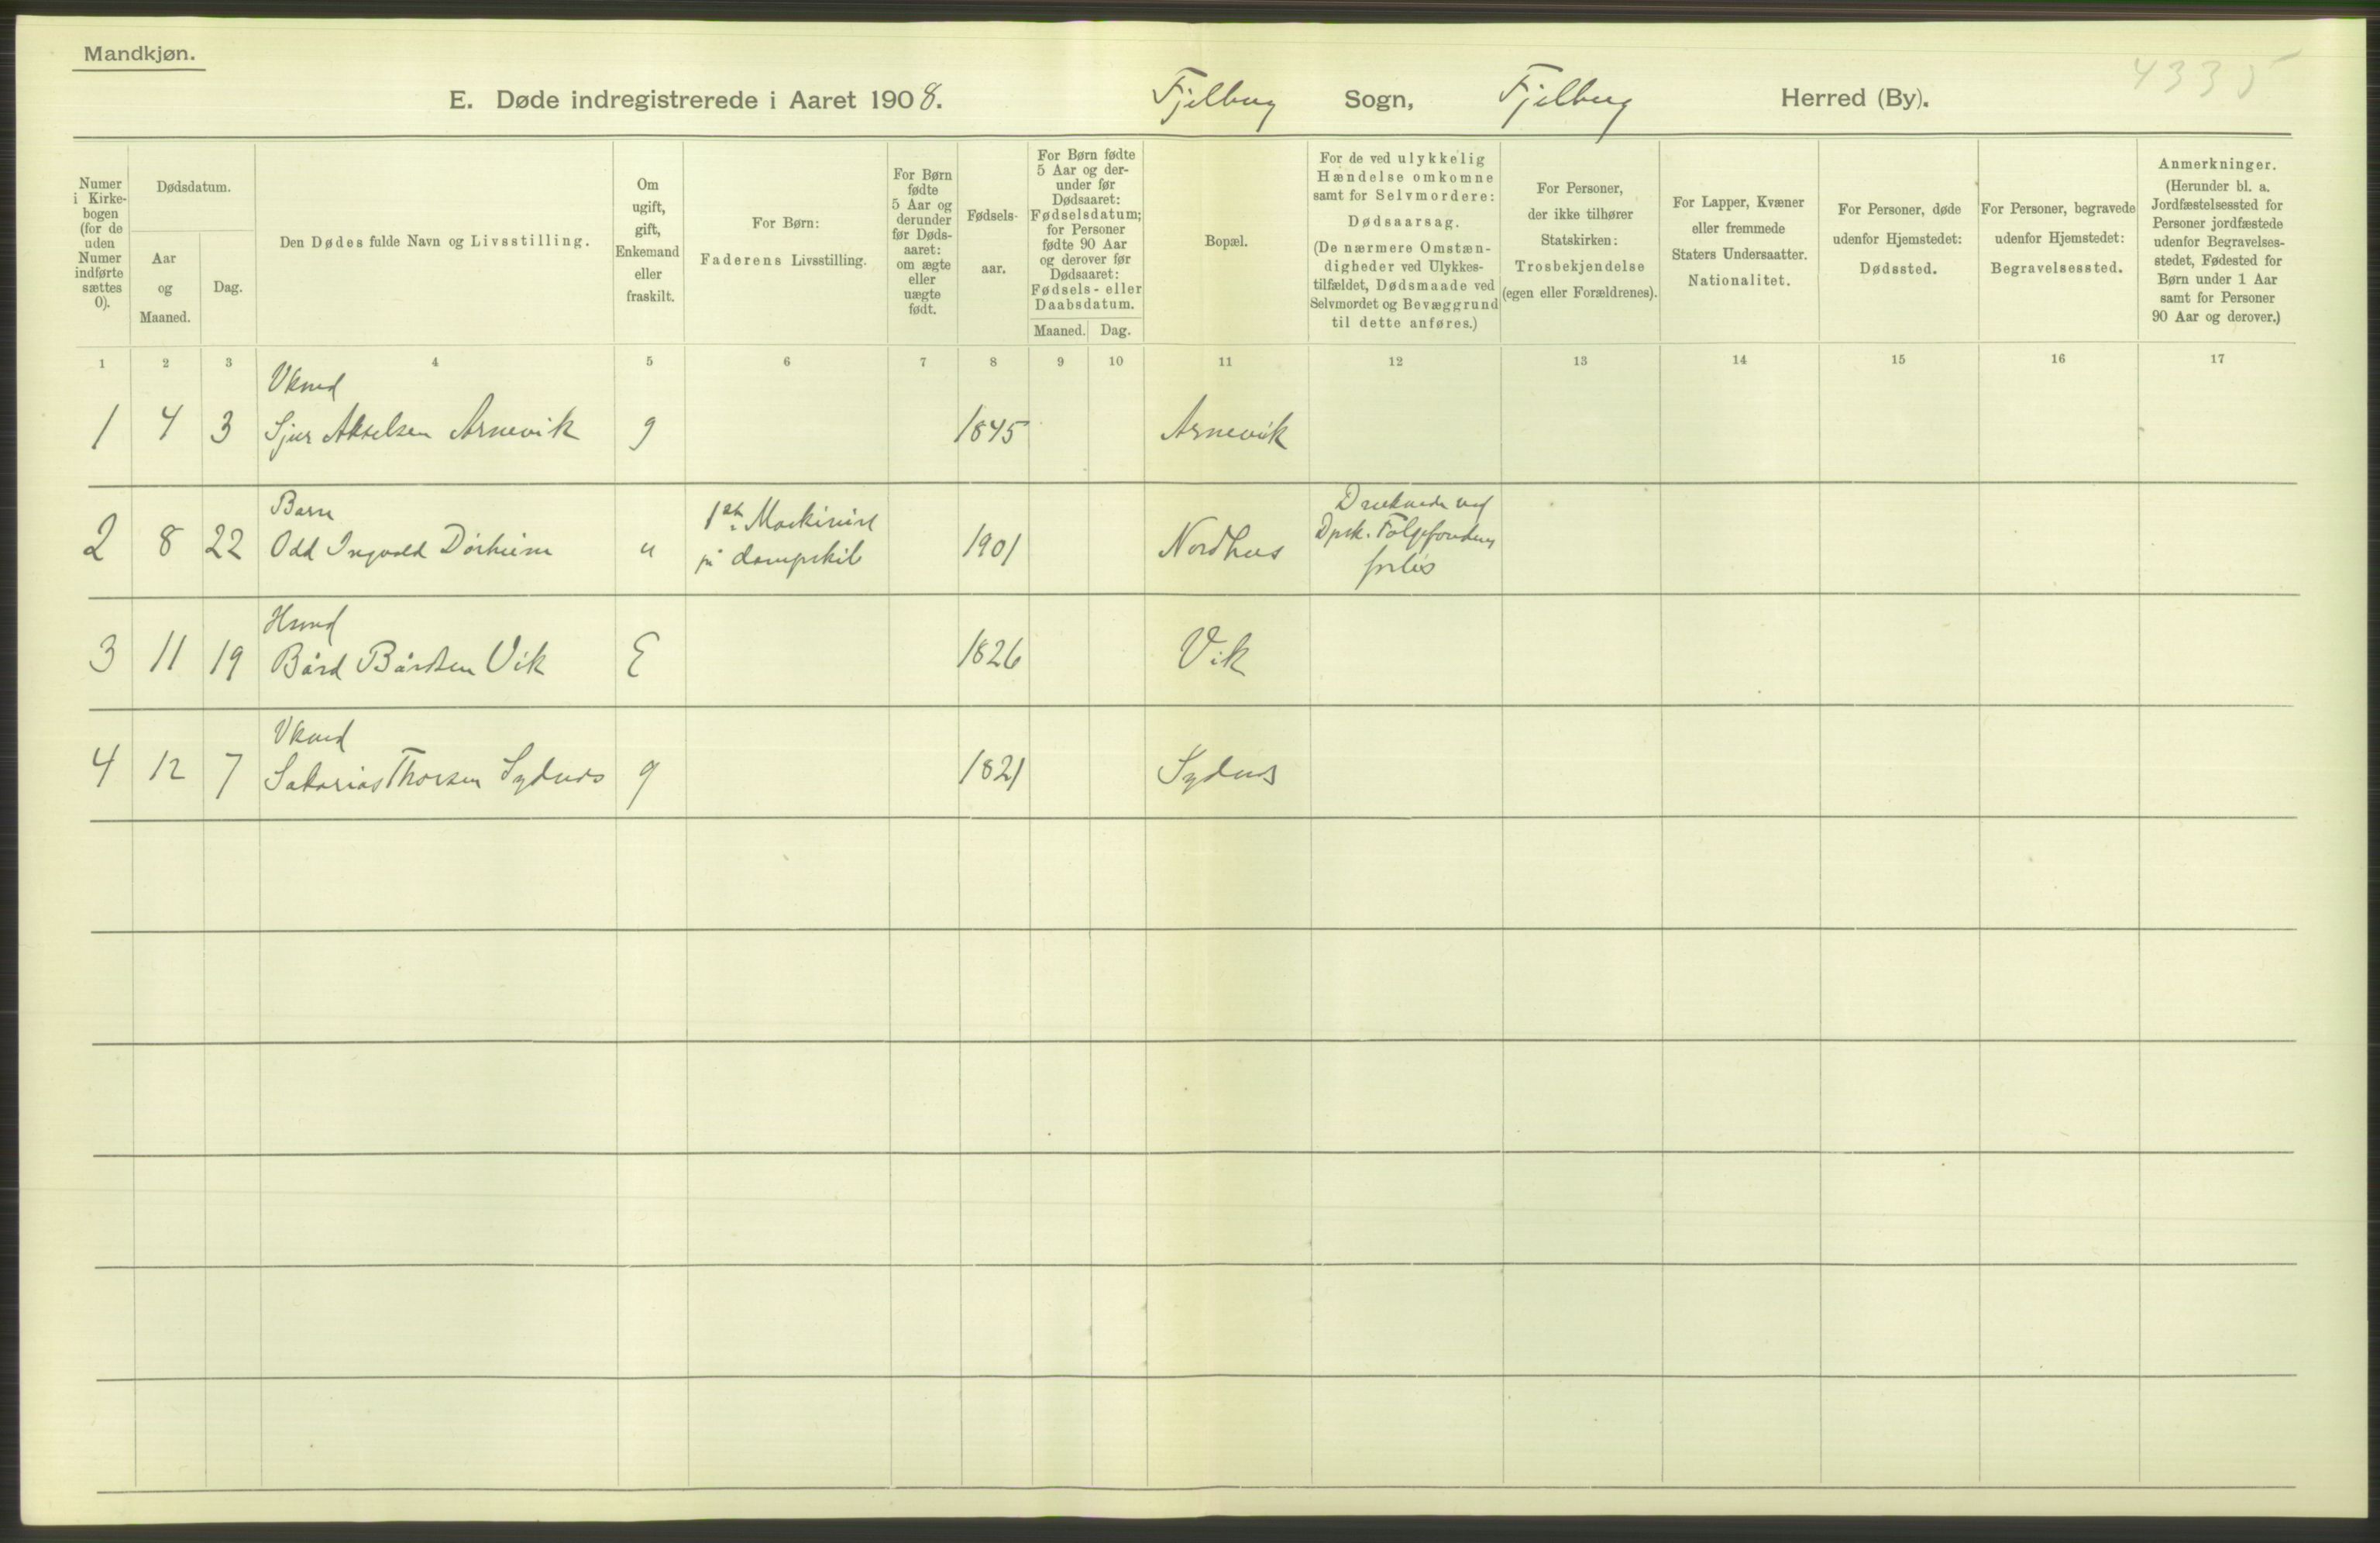 Mandkjøn.
4335
E. Døde indregistrerede i Aaret 1908. Fjelberg Sogn, Fjelberg Herred (By).
Numer
i Kirke-
bogen
(for de
uden
Numer
indførte
sættes
0).
Dødsdatum.
Aar
og
Maaned.
Dag.
Den Dødes fulde Navn og Livsstilling.
Om
ugift,
gift,
Enkemand
eller
fraskilt.
For Børn:
Faderens Livsstilling.
For Børn
fødte
5 Aar og
derunder
før Døds-
aaret:
om ægte
eller
uægte
født.
Fødsels-
aar.
For Børn fødte
5 Aar og der-
under før
Dødsaaret:
Fødselsdatum;
for Personer
fødte 90 Aar
og derover før
Dødsaaret:
Fødsels- eller
Daabsdatum.
Maaned. Dag.
Bopæl.
For de ved ulykkelig
Hændelse omkomne
samt for Selvmordere:
Dødsaarsag.
(De nærmere Omstæn-
digheder ved Ulykkes-
tilfældet, Dødsmaade ved
Selvmordet og Bevæggrund
til dette anføres.)
For Personer,
der ikke tilhører
Statskirken:
Trosbekjendelse
(egen eller Forældrenes).
For Lapper, Kvæner
eller fremmede
Staters Undersaatter.
Nationalitet.
For Personer, døde
udenfor Hjemstedet:
Dødssted.
For Personer, begravede
udenfor Hjemstedet:
Begravelsessted.
Anmerkninger.
(Herunder bl. a.
Jordfæstelsessted for
Personer jordfæstede
udenfor Begravelses-
stedet, Fødested for
Børn under 1 Aar
samt for Personer
90 Aar og derover.)
1 2 3 4 5 6 7 8 9 10 11 12 13 14 15 16 17
Vkmd
1 4 3 Sjur Akselsen Arnevik g 1845 Arnevik
Barn
2 8 22 Odd Ingvald Dørheim u 1ste Maskinist på dampskib 1901 Nordhus
Druknede ved
Dpsk. Folgefondens
forlis
Hsmd
3 11 19 Bård Bårdsen Vik E 1826 Vik
Vkmd
4 12 7 Sakarias Thorsen Sydnes g 1821 Sydnes